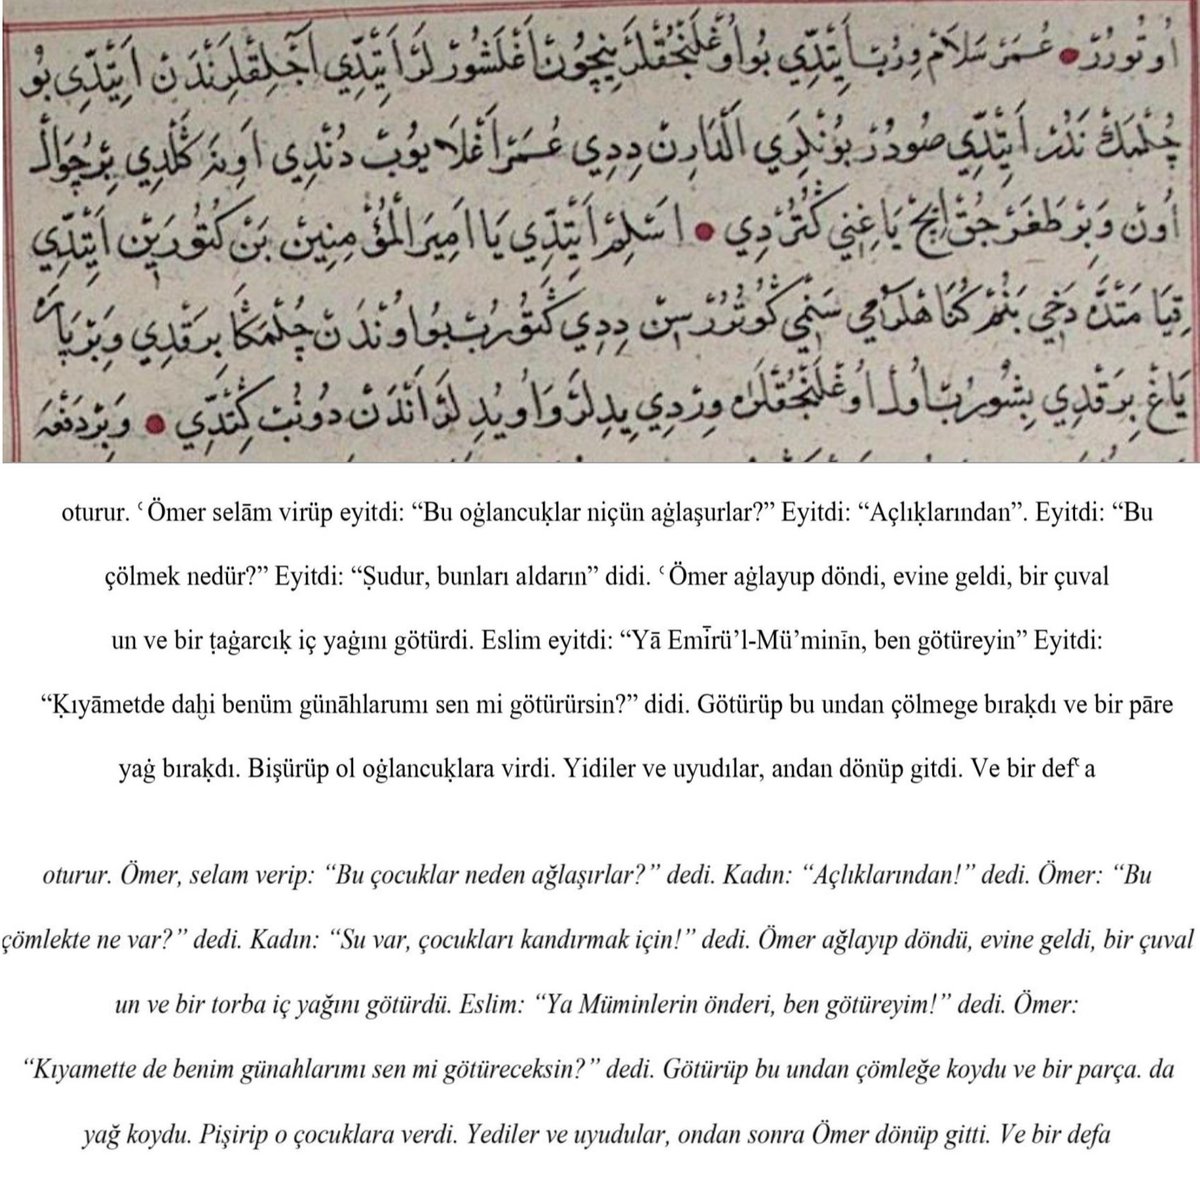 اُوتُورُرْ • عُمَرْ سَلَامْ وِرُبْ اَيِتْدِي بُو اُوغْلَنْجُقْلَرْ نِيچُونْ اَغْلَشُورْلَرْ اَيِتْدِي آجْلِقْلَرِنْدَنْ اَيِتْدِي بُو
چُلْمَكْ نَدُرْ اَيِتْدِي صُودُرْ بُونْلَرِي اَلْدَارِنْ دِدِي عُمَرْ اَغْلَايُوبْ دُنْدِي اَوِنَه كَلْدِي بِرْ چُوَالْ
اُونْ وَبِرْ طَغَرْجُقْ اِيچْ يَاغِنِي كُتُرْدِي • اَسْلِمْ اَيِتْدِي يَا اَمِيرَ الْمُؤْمِنِينْ بَنْ كُتُورَيِنْ اَيِتْدِي
قِيَامَتْدَه دَخِي بَنُمْ كُنَاهْلَرُمِي سَنْمِي كُوتُرُرْسِنْ دِدِي كُتُورُبْ بُو اُونْدَنْ چُلْمَكَا بِرَقْدِي وَبِرْ پَارَه
يَاغْ بِرَقْدِي بِشُورُبْ اُولْ اُوغْلَنْجُقْلَرَه وِرْدِي يِدِلَرْ وَاُويُدِلَرْ اَنْدَنْ دُونُبْ كِتْدِي • وَبِرْ دَفْعَه
oturur. ʿÖmer selām virüp eyitdi: “Bu oġlancuḳlar niçün aġlaşurlar?” Eyitdi: “Açlıḳlarından”. Eyitdi: “Bu
çölmek nedür?” Eyitdi: “Ṣudur, bunları aldarın” didi. ʿÖmer aġlayup döndi, evine geldi, bir çuval
un ve bir ṭaġarcıḳ iç yaġını götürdi. Eslim eyitdi: “Yā Emīrü’l-Mü’minīn, ben götüreyin” Eyitdi:
“Ḳıyāmetde daḫi benüm günāhlarumı sen mi götürürsin?” didi. Götürüp bu undan çölmege bıraḳdı ve bir pāre
yaġ bıraḳdı. Bişürüp ol oġlancuḳlara virdi. Yidiler ve uyudılar, andan dönüp gitdi. Ve bir defʿa
oturur. Ömer, selam verip: “Bu çocuklar neden ağlaşırlar?” dedi. Kadın: “Açlıklarından!” dedi. Ömer: “Bu
çömlekte ne var?” dedi. Kadın: “Su var, çocukları kandırmak için!” dedi. Ömer ağlayıp döndü, evine geldi, bir çuval
un ve bir torba iç yağını götürdü. Eslim: “Ya Müminlerin önderi, ben götüreyim!” dedi. Ömer:
“Kıyamette de benim günahlarımı sen mi götüreceksin?” dedi. Götürüp bu undan çömleğe koydu ve bir parça. da
yağ koydu. Pişirip o çocuklara verdi. Yediler ve uyudular, ondan sonra Ömer dönüp gitti. Ve bir defa